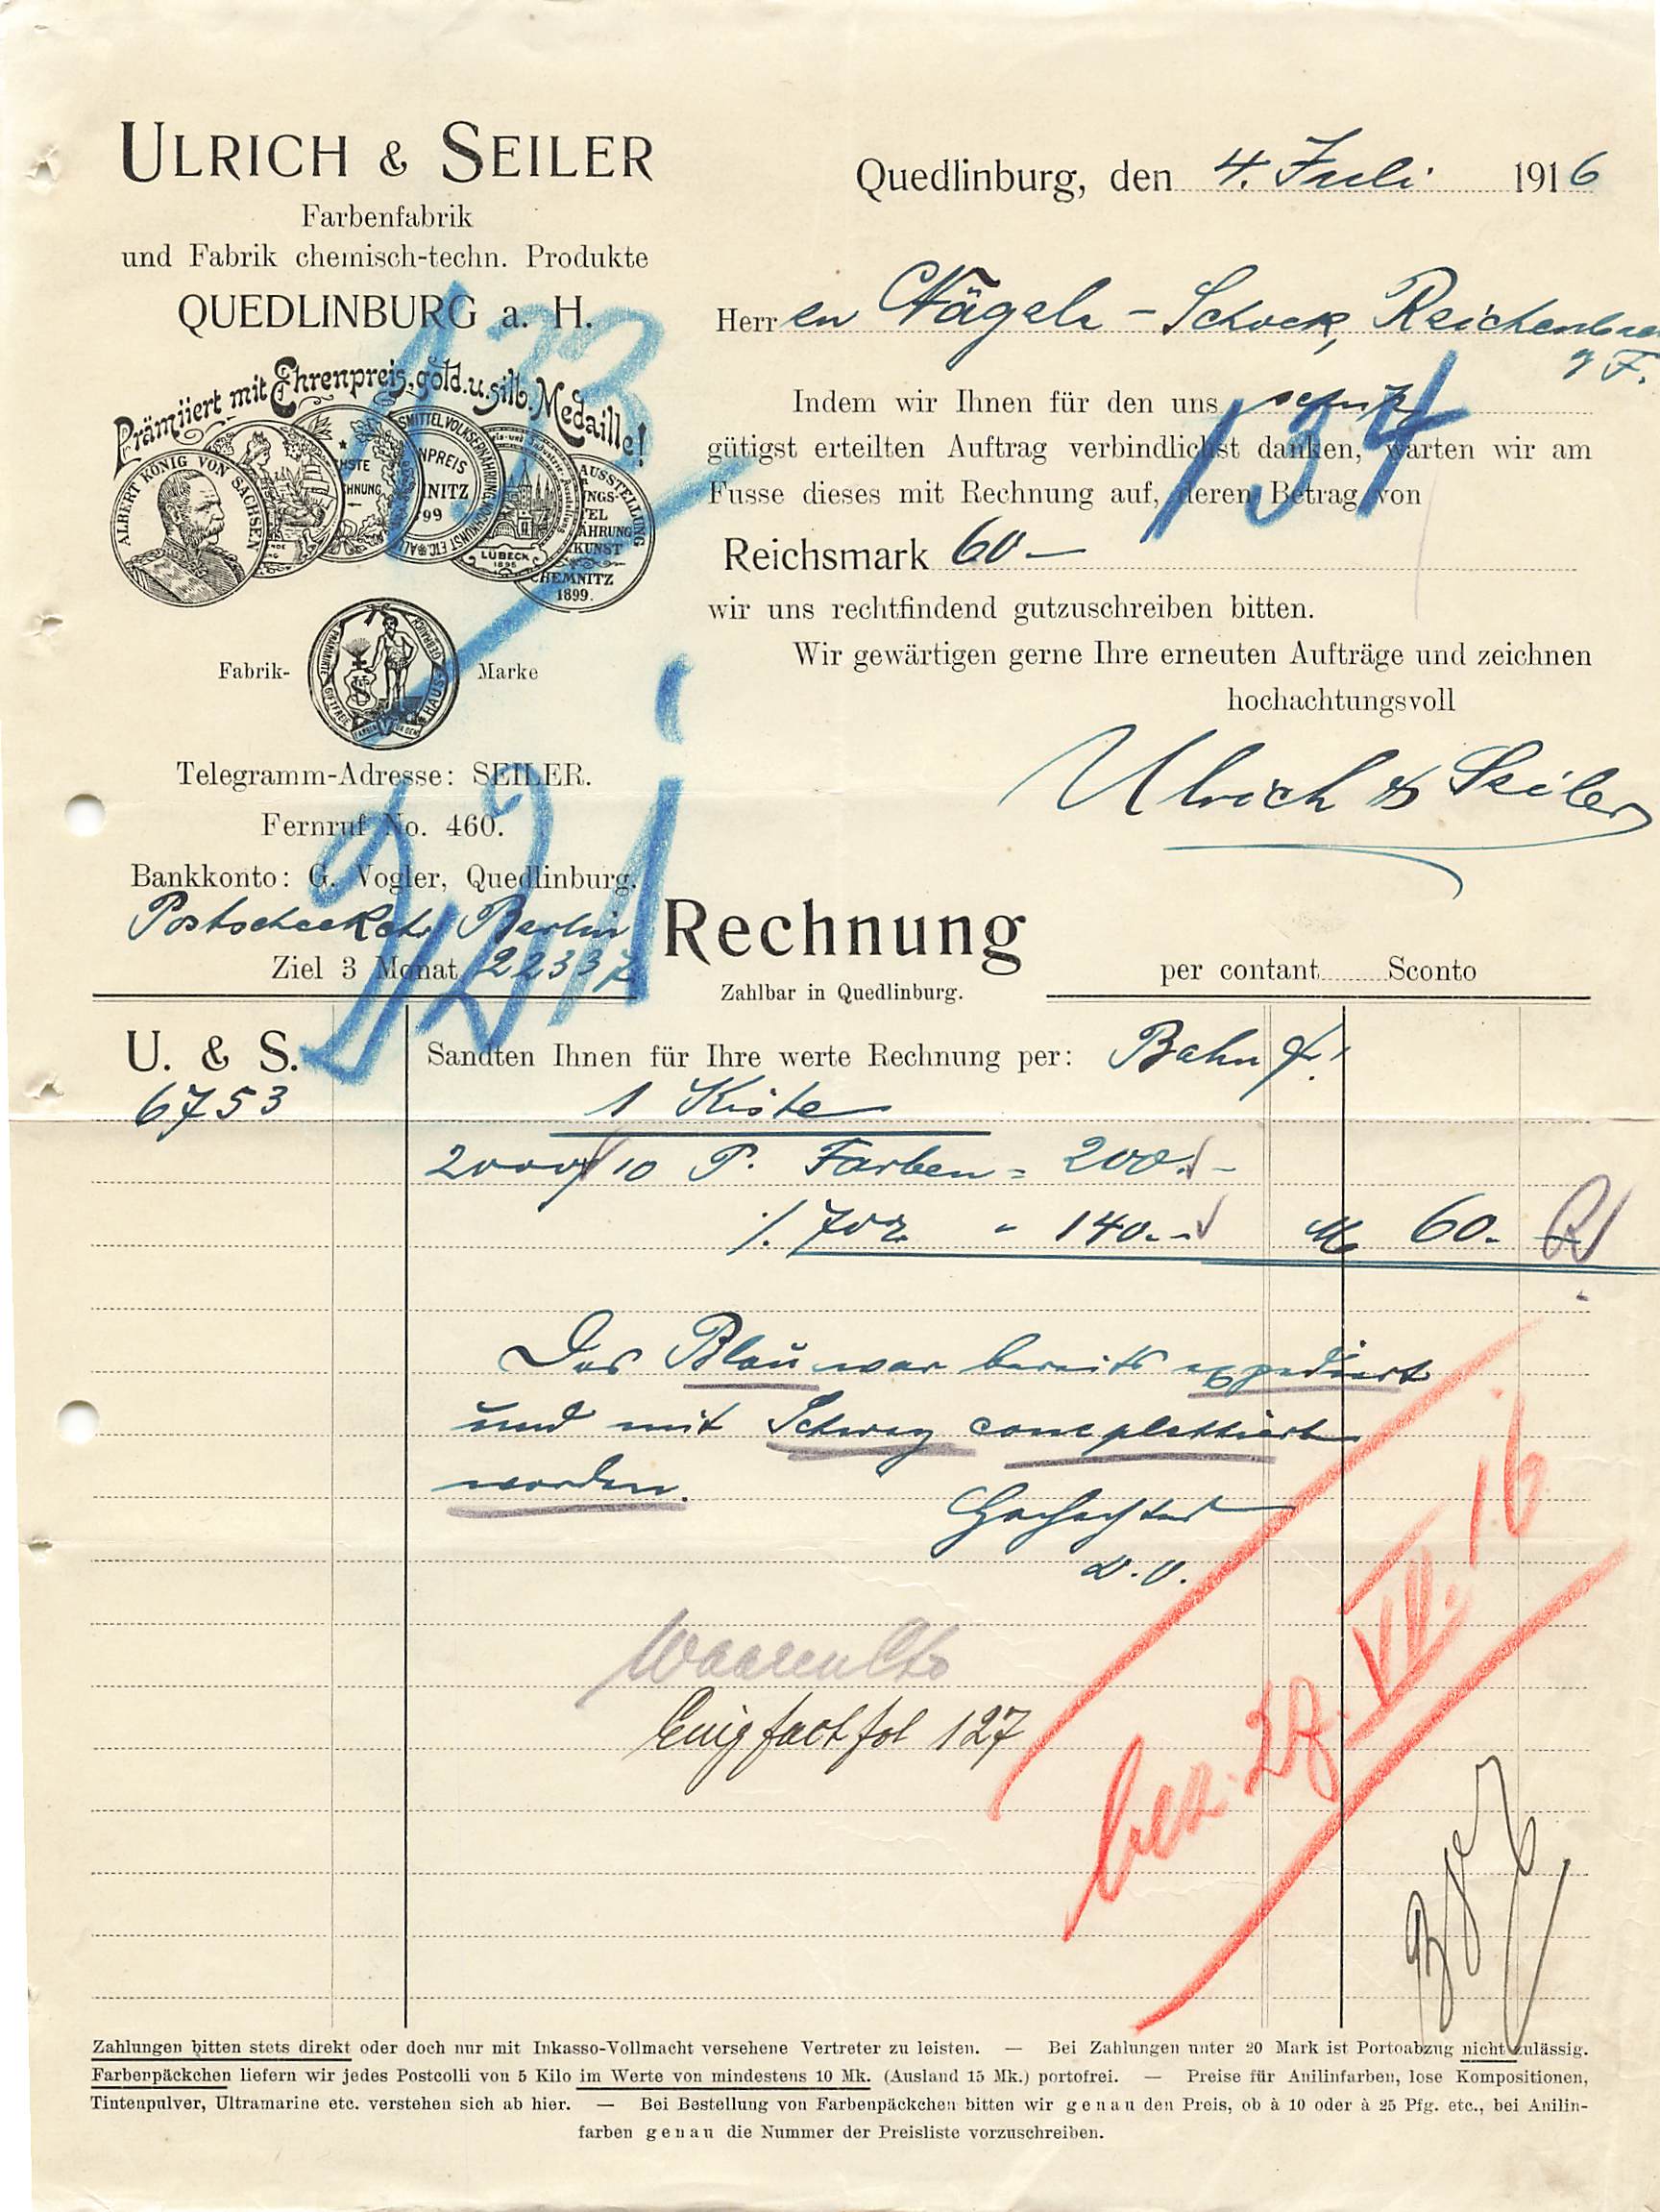 ULRICH & SEILER
Farbenfabrik
und Fabrik chemisch-techn. Produkte
QUEDLINBURG a. H.
Prämiiert mit Ehrenpreis, gold. u. silb. Medaille!
ALBERT KÖNIG VON SACHSEN
LÜBECK
1895
CHEMNITZ
1899.
Fabrik- Marke
Telegramm-Adresse: SEILER.
Fernruf No. 460.
Bankkonto: G. Vogler, Quedlinburg.
Postscheckcto Berlin
Ziel 3 Monat 22337
Quedlinburg, den 4. Juli 1916
Herren Nägele - Schock, Reichenbach
a F.
Indem wir Ihnen für den uns
gütigst erteilten Auftrag verbindlichst danken, warten wir am
Fusse dieses mit Rechnung auf, deren Betrag von
Reichsmark 60—
wir uns rechtfindend gutzuschreiben bitten.
Wir gewärtigen gerne Ihre erneuten Aufträge und zeichnen
hochachtungsvoll
Ulrich & Seiler
133
134
221
Rechnung
Zahlbar in Quedlinburg.
per contant Sconto
U. & S. Sandten Ihnen für Ihre werte Rechnung per: Bahn
6753 1 Kiste
2000/10 P. Farben = 200.-
./. 70% " 140.- M 60.-
Das Blau war bereits expediert
und mit Schwarz complettiert
worden.
Hochachtend
D.O.
Waaren Cto
fact fol 127
bez. 28. VII. 16
Zahlungen bitten stets direkt oder doch nur mit Inkasso-Vollmacht versehene Vertreter zu leisten. — Bei Zahlungen unter 20 Mark ist Portoabzug nicht zulässig.
Farbenpäckchen liefern wir jedes Postcolli von 5 Kilo im Werte von mindestens 10 Mk. (Ausland 15 Mk.) portofrei. — Preise für Anilinfarben, lose Kompositionen,
Tintenpulver, Ultramarine etc. verstehen sich ab hier. — Bei Bestellung von Farbenpäckchen bitten wir genau den Preis, ob à 10 oder à 25 Pfg. etc., bei Anilin-
farben genau die Nummer der Preisliste vorzuschreiben.